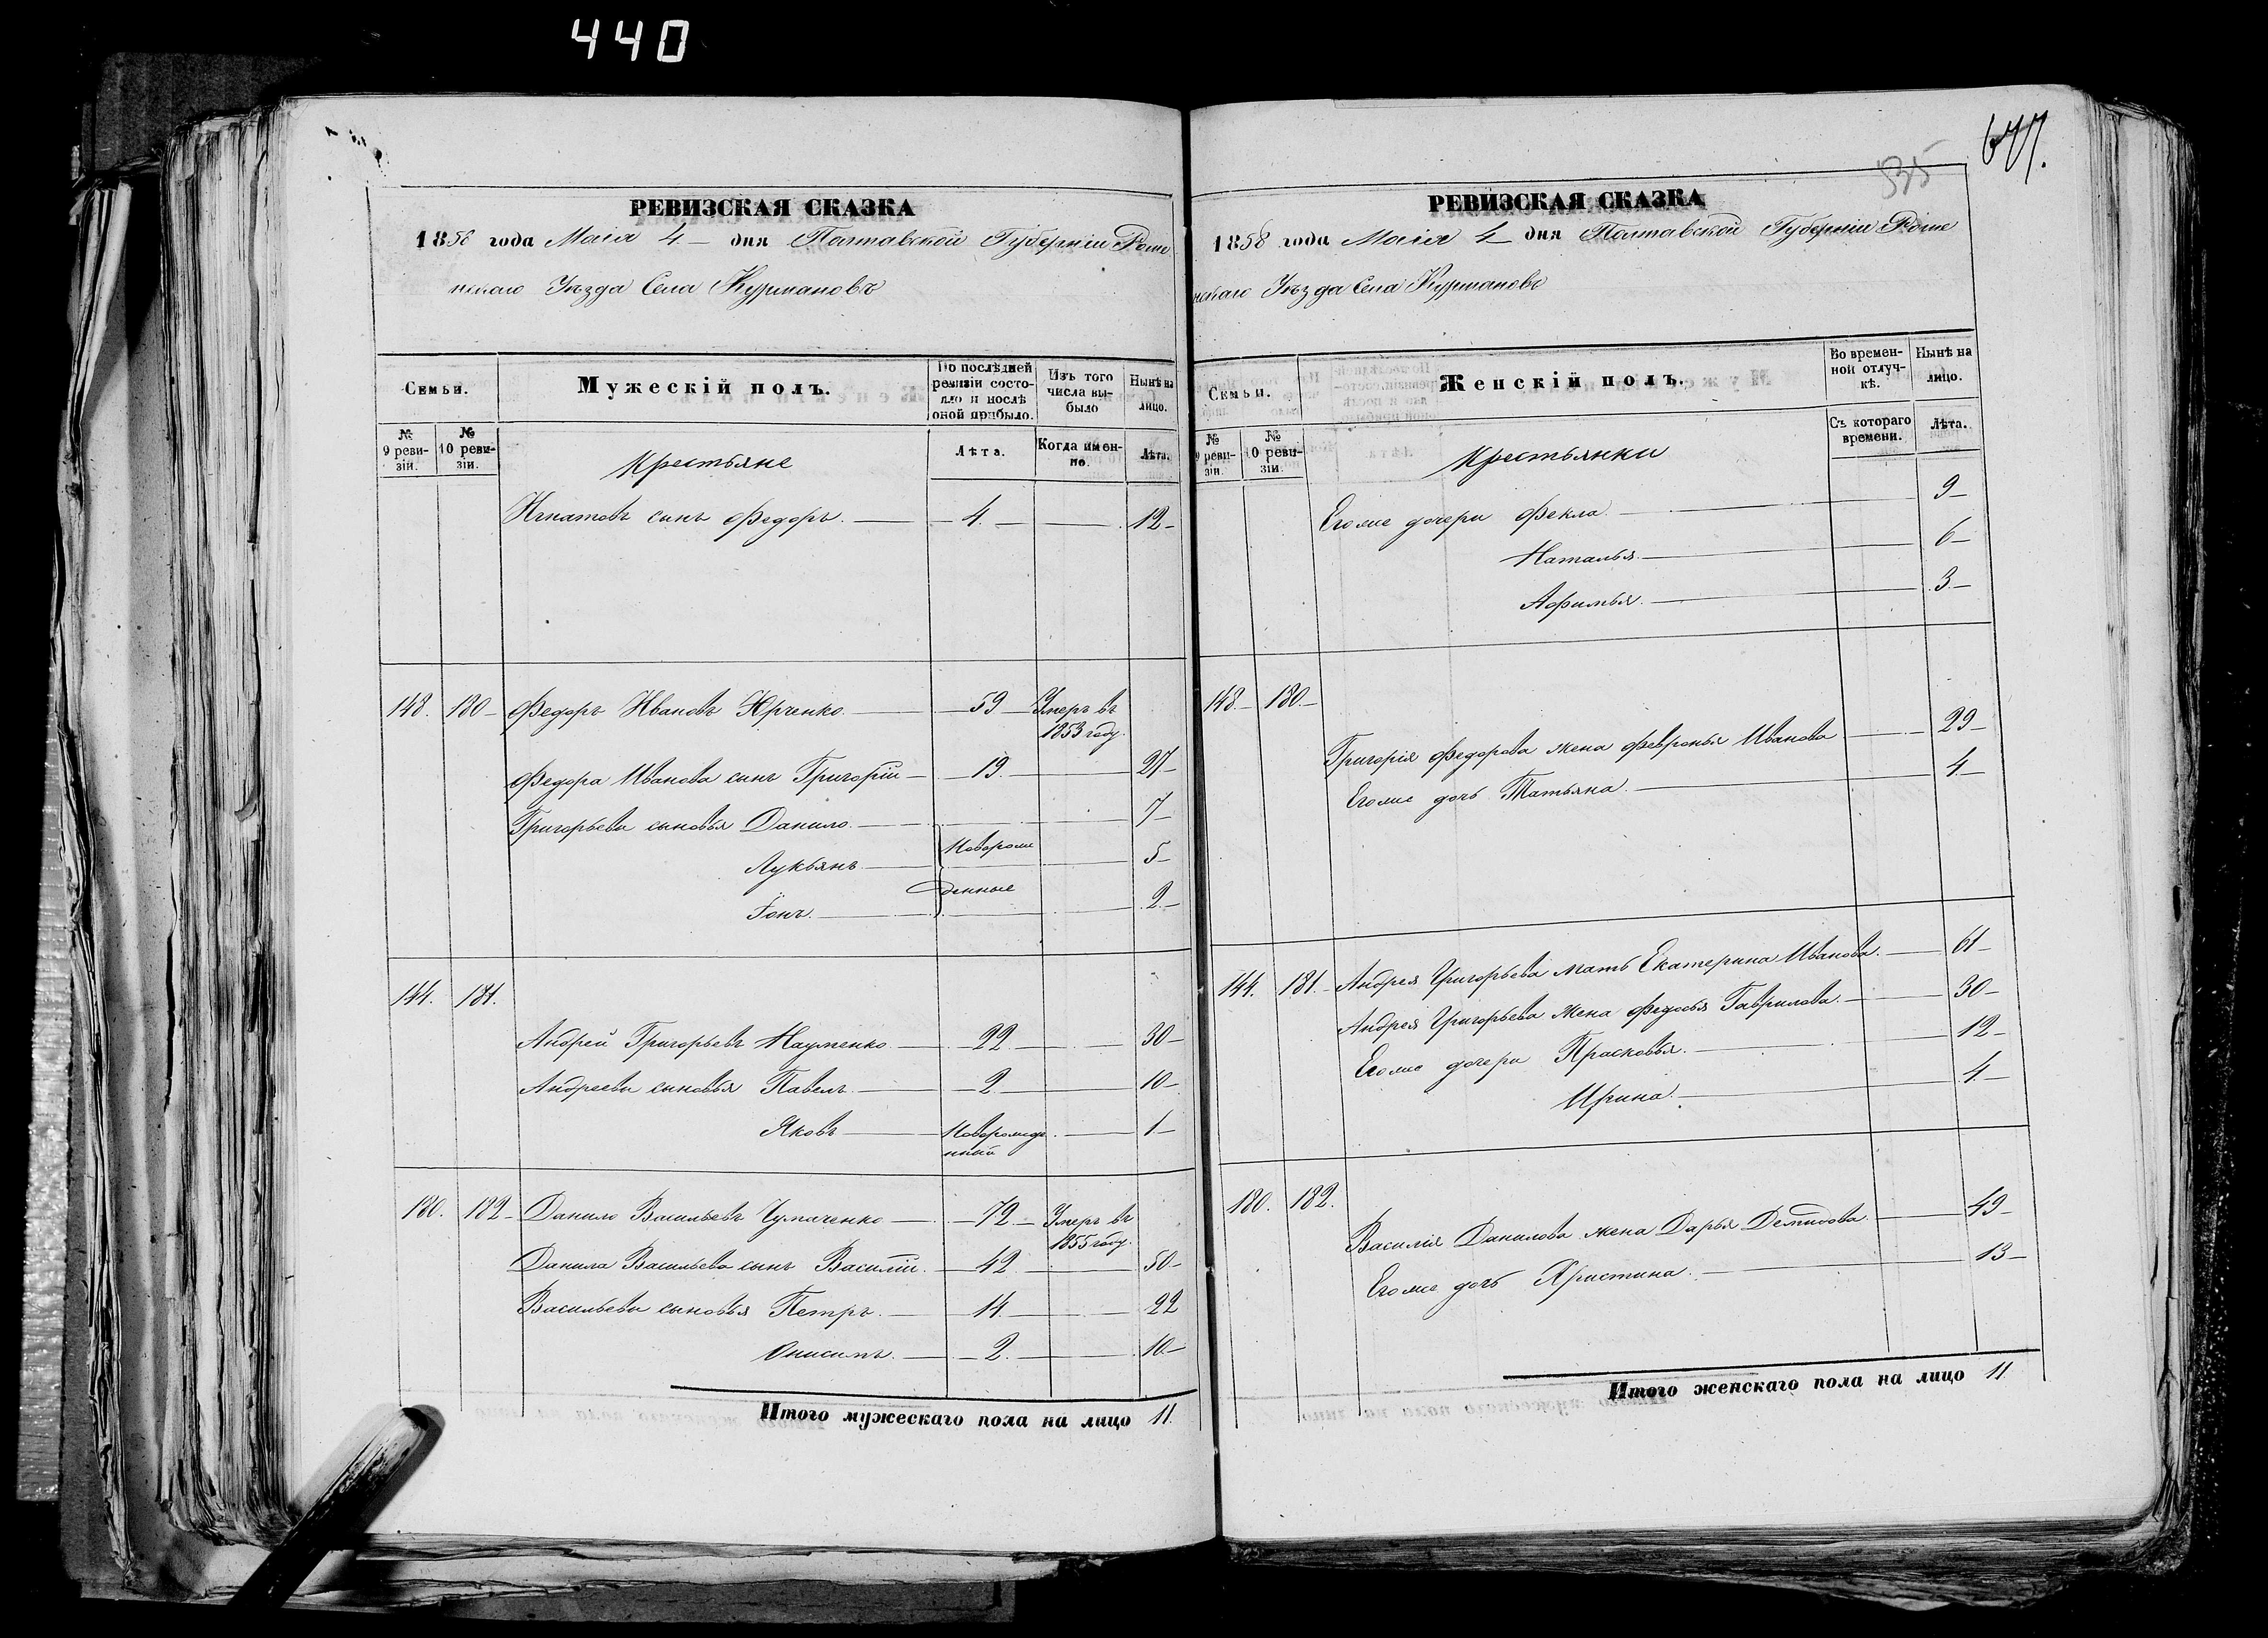 440
РЕВИЗСКАЯ СКАЗКА
1858 года Маія 4 дня Полтавской Губерніи Роме
нскаго Уѣзда Села Курмановъ
Семьи.
Мужескій полъ.
По послѣдней ревизіи состояло и послѣ оной прибыло.
Изъ того числа выбыло
Нынѣ на лицо.
№ 9 ревизіи.
№ 10 ревизіи.
Крестьяне
Лѣта.
Когда именно.
Лѣта.
Игнатовъ сынъ Федоръ. 4. 12
143. 180 Федоръ Ивановъ Юрченко. 59 Умеръ въ
1853 году.
Федора Иванова сынъ Григорій 19. 27
Григорьевы сыновья Данило. 7
Лукьянъ Новорож 5
денные
Іонъ. 2
144. 181.
Андрей Григорьевъ Науменко 22. 30
Андреевы сыновья Павелъ. 2 10
Яковъ Новорожде 1
нный
180. 182 Данило Васильевъ Чумаченко 72 Умеръ въ
1855 году.
Данила Васильева сынъ Василій. 42 50
Васильевы сыновья Петръ. 14. 22
Онисимъ. 2. 10
Итого мужескаго пола на лицо 11.
535
677.
РЕВИЗСКАЯ СКАЗКА
1858 года Маія 4 дня Полтавской Губерніи Роме
нскаго Уѣзда Села Курмановъ
Семьи.
Женскій полъ.
Во временной отлучкѣ.
Нынѣ на лицо.
№ 9 ревизіи.
№ 10 ревизіи.
Крестьянки
Съ котораго времени.
Лѣта.
Его же дочери Фекла. 9
Наталья 6
Афимья. 3
143. 180.
Григорія Федорова жена Февронья Иванова 29
Его же дочь Татьяна. 4
144. 181. Андрея Григорьева мать Екатерина Иванова. 61
Андрея Григорьева жена Федосья Гаврилова. 30
Его же дочери Прасковья. 12
Ирина. 4
180. 182.
Василія Данилова жена Дарья Демидова. 49
Его же дочь Христина. 13
Итого женскаго пола на лицо 11